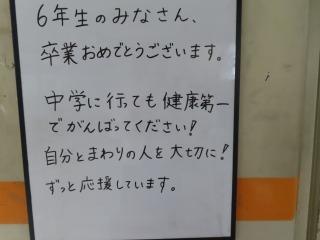 6年生のみなさん、
卒業おめでとうございます。
中学に行っても健康第一
でがんばってください!
自分とまわりの人を大切に!
ずっと応援しています。